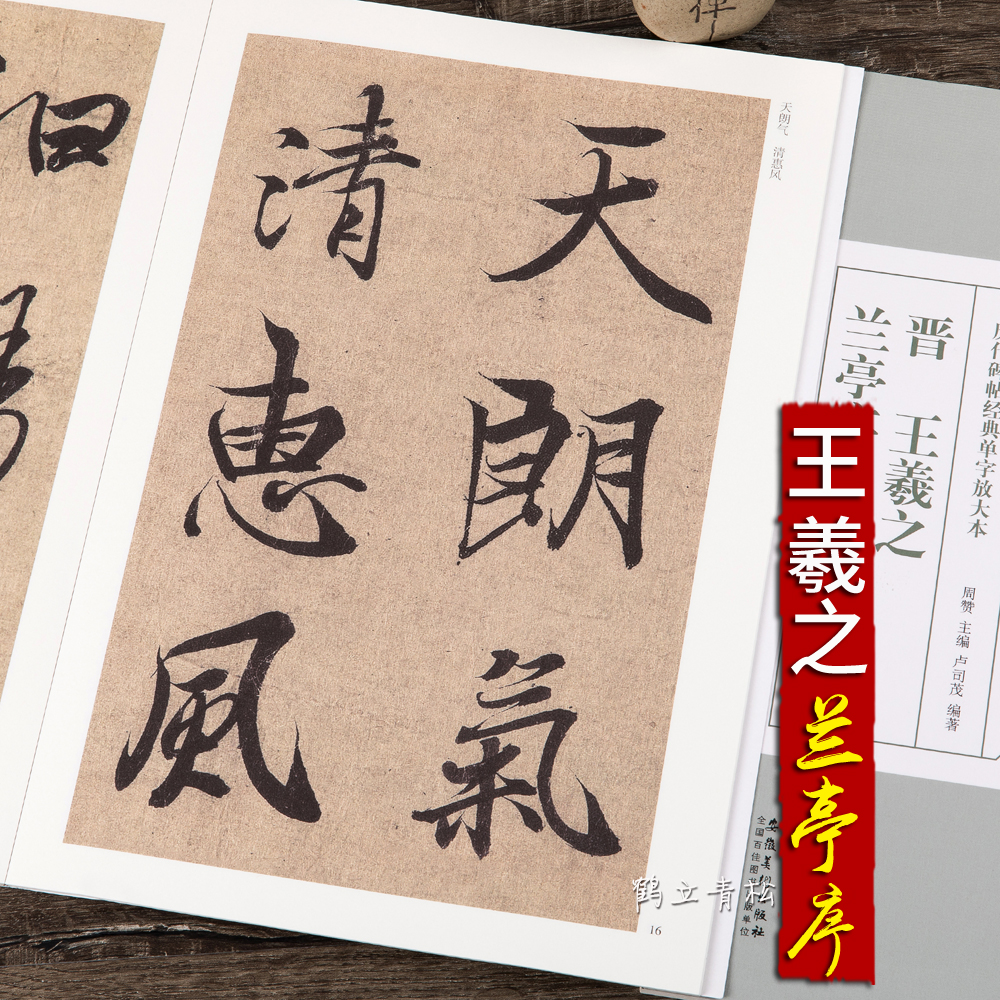 天朗氣
清惠風
天朗气 清惠风
16
晋 王羲之
兰亭
历代碑帖经典单字放大本
周赞 主编 卢司茂 编著
安徽美
版社
全国百佳图
版单位
王羲之
兰亭序
鹤立青松